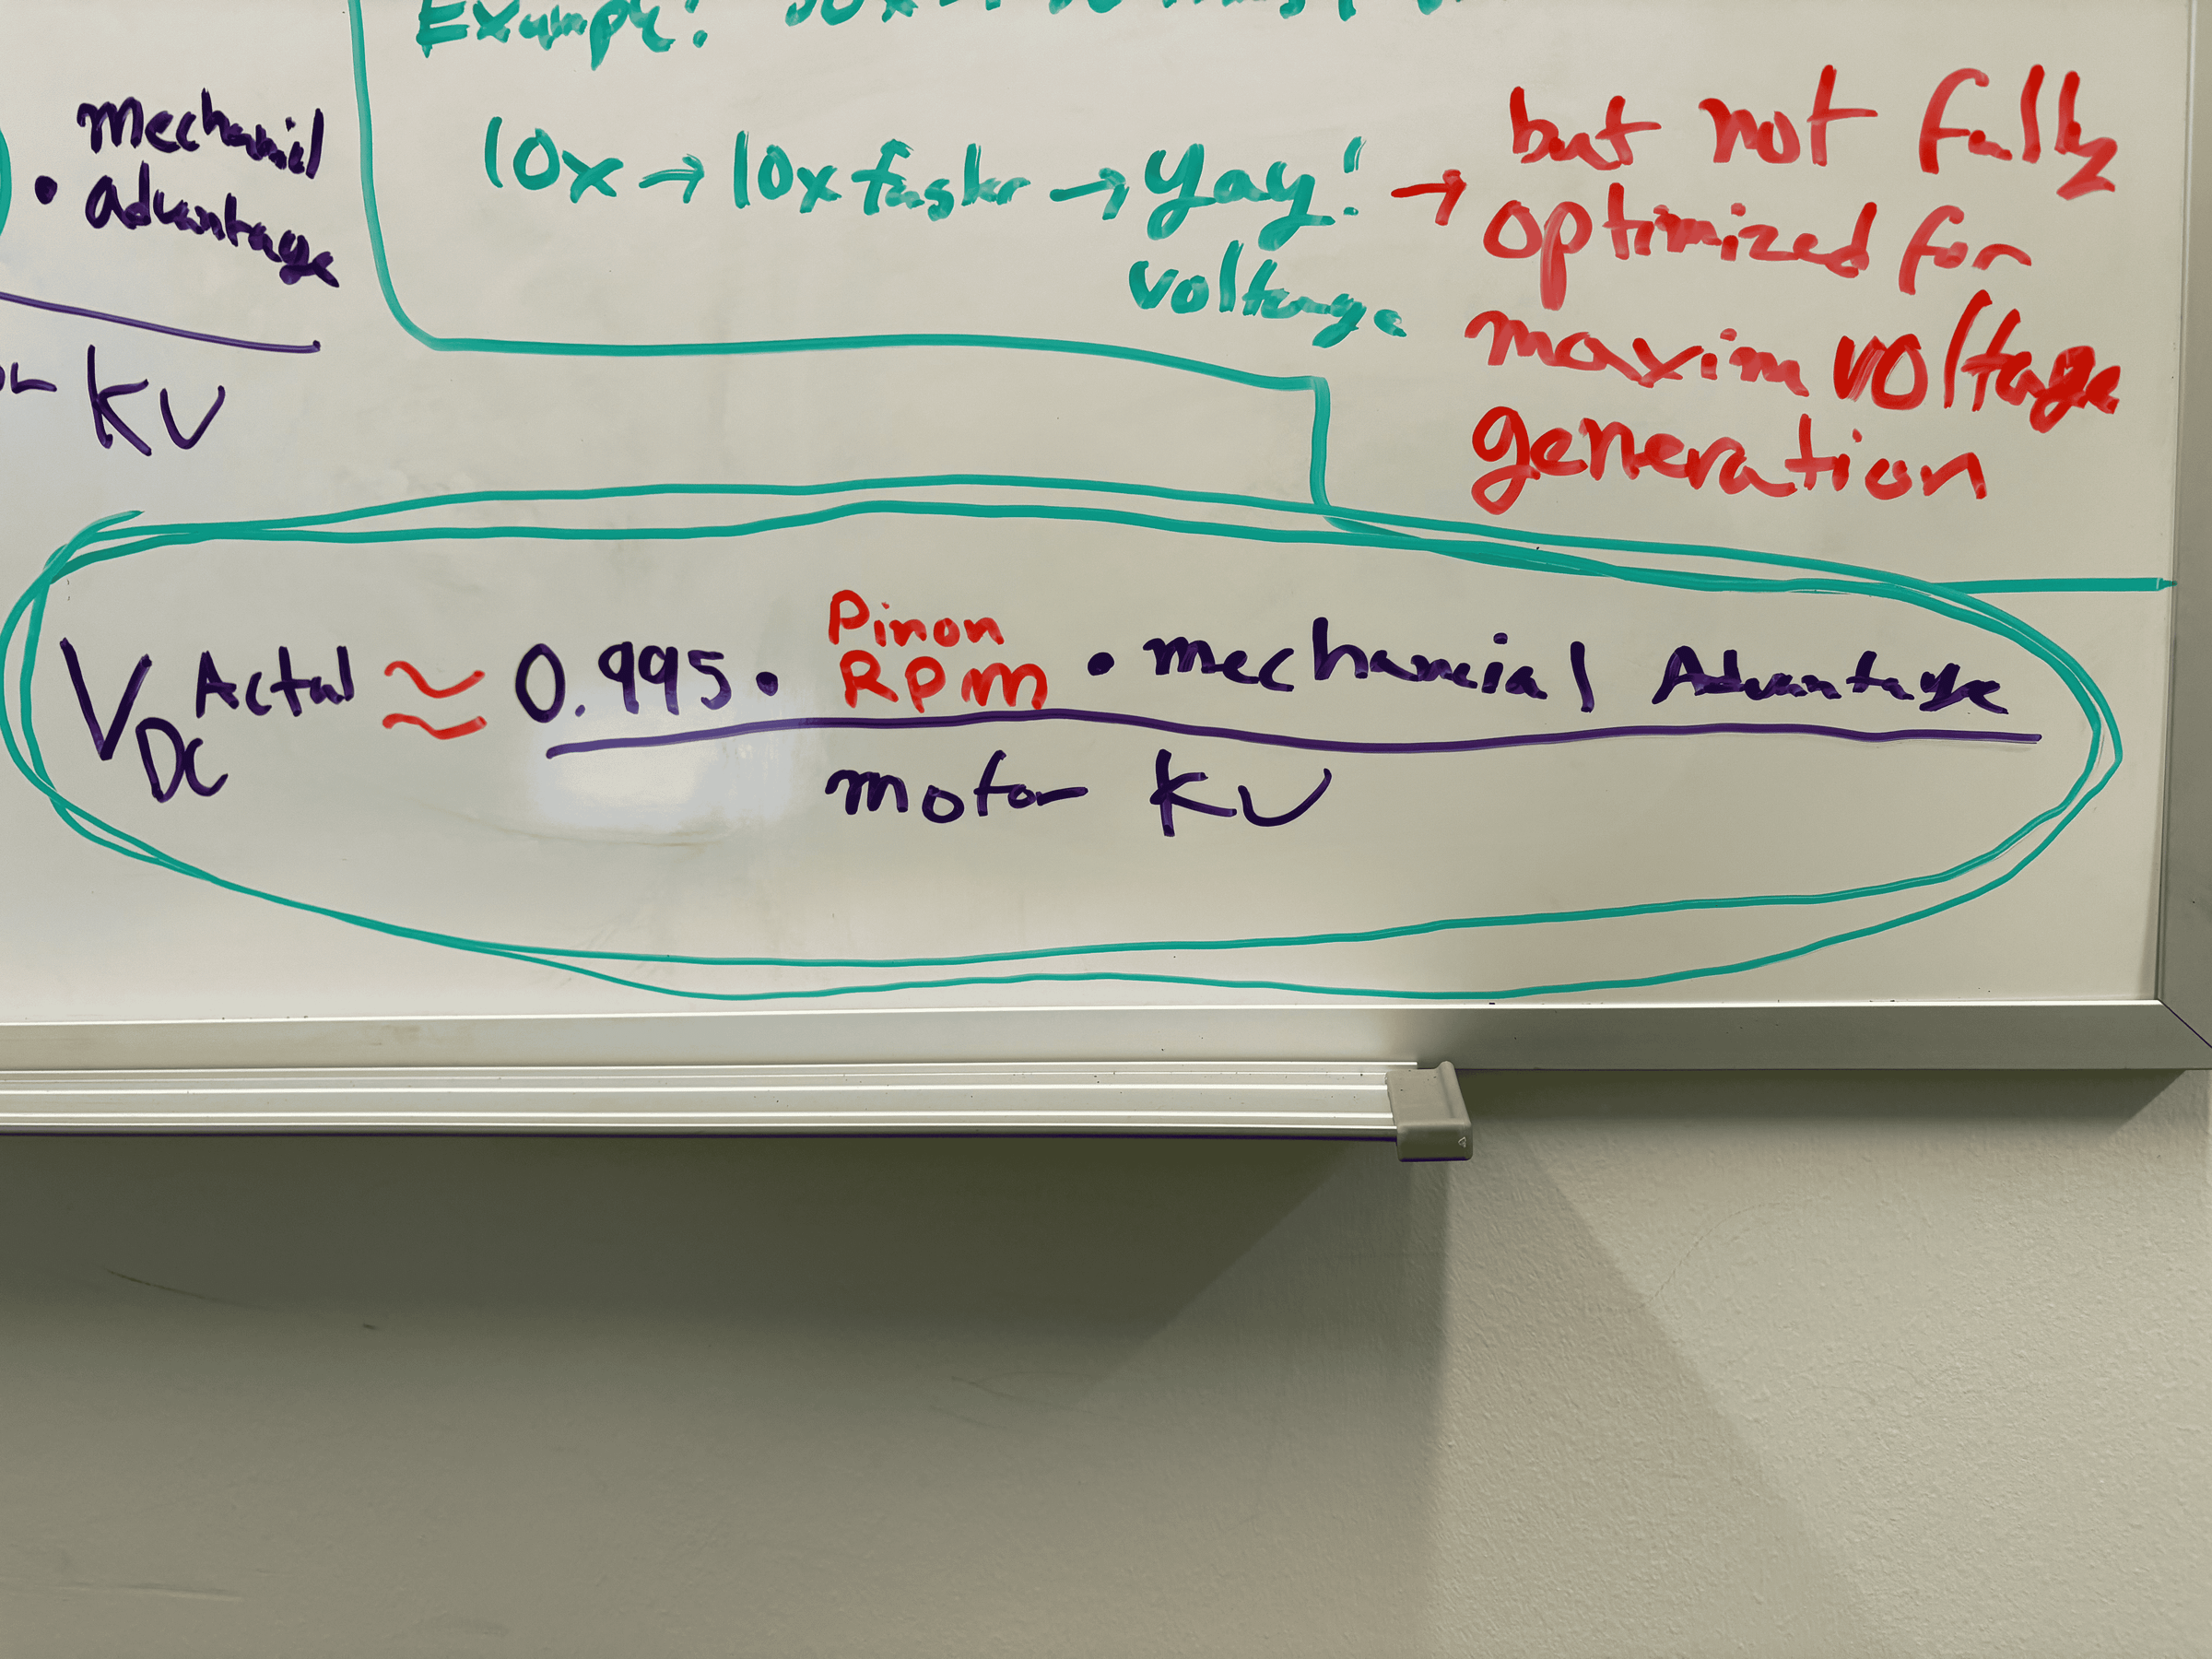 Example:
mechanicl
• advantage
KV
10x → 10x faster → Yay!
voltage
→ but not fully
optimized for
maxim voltage
generation
Pinon
V DC Actual ≈ 0.995 • RPM • mechanicial Advantage
motor KV